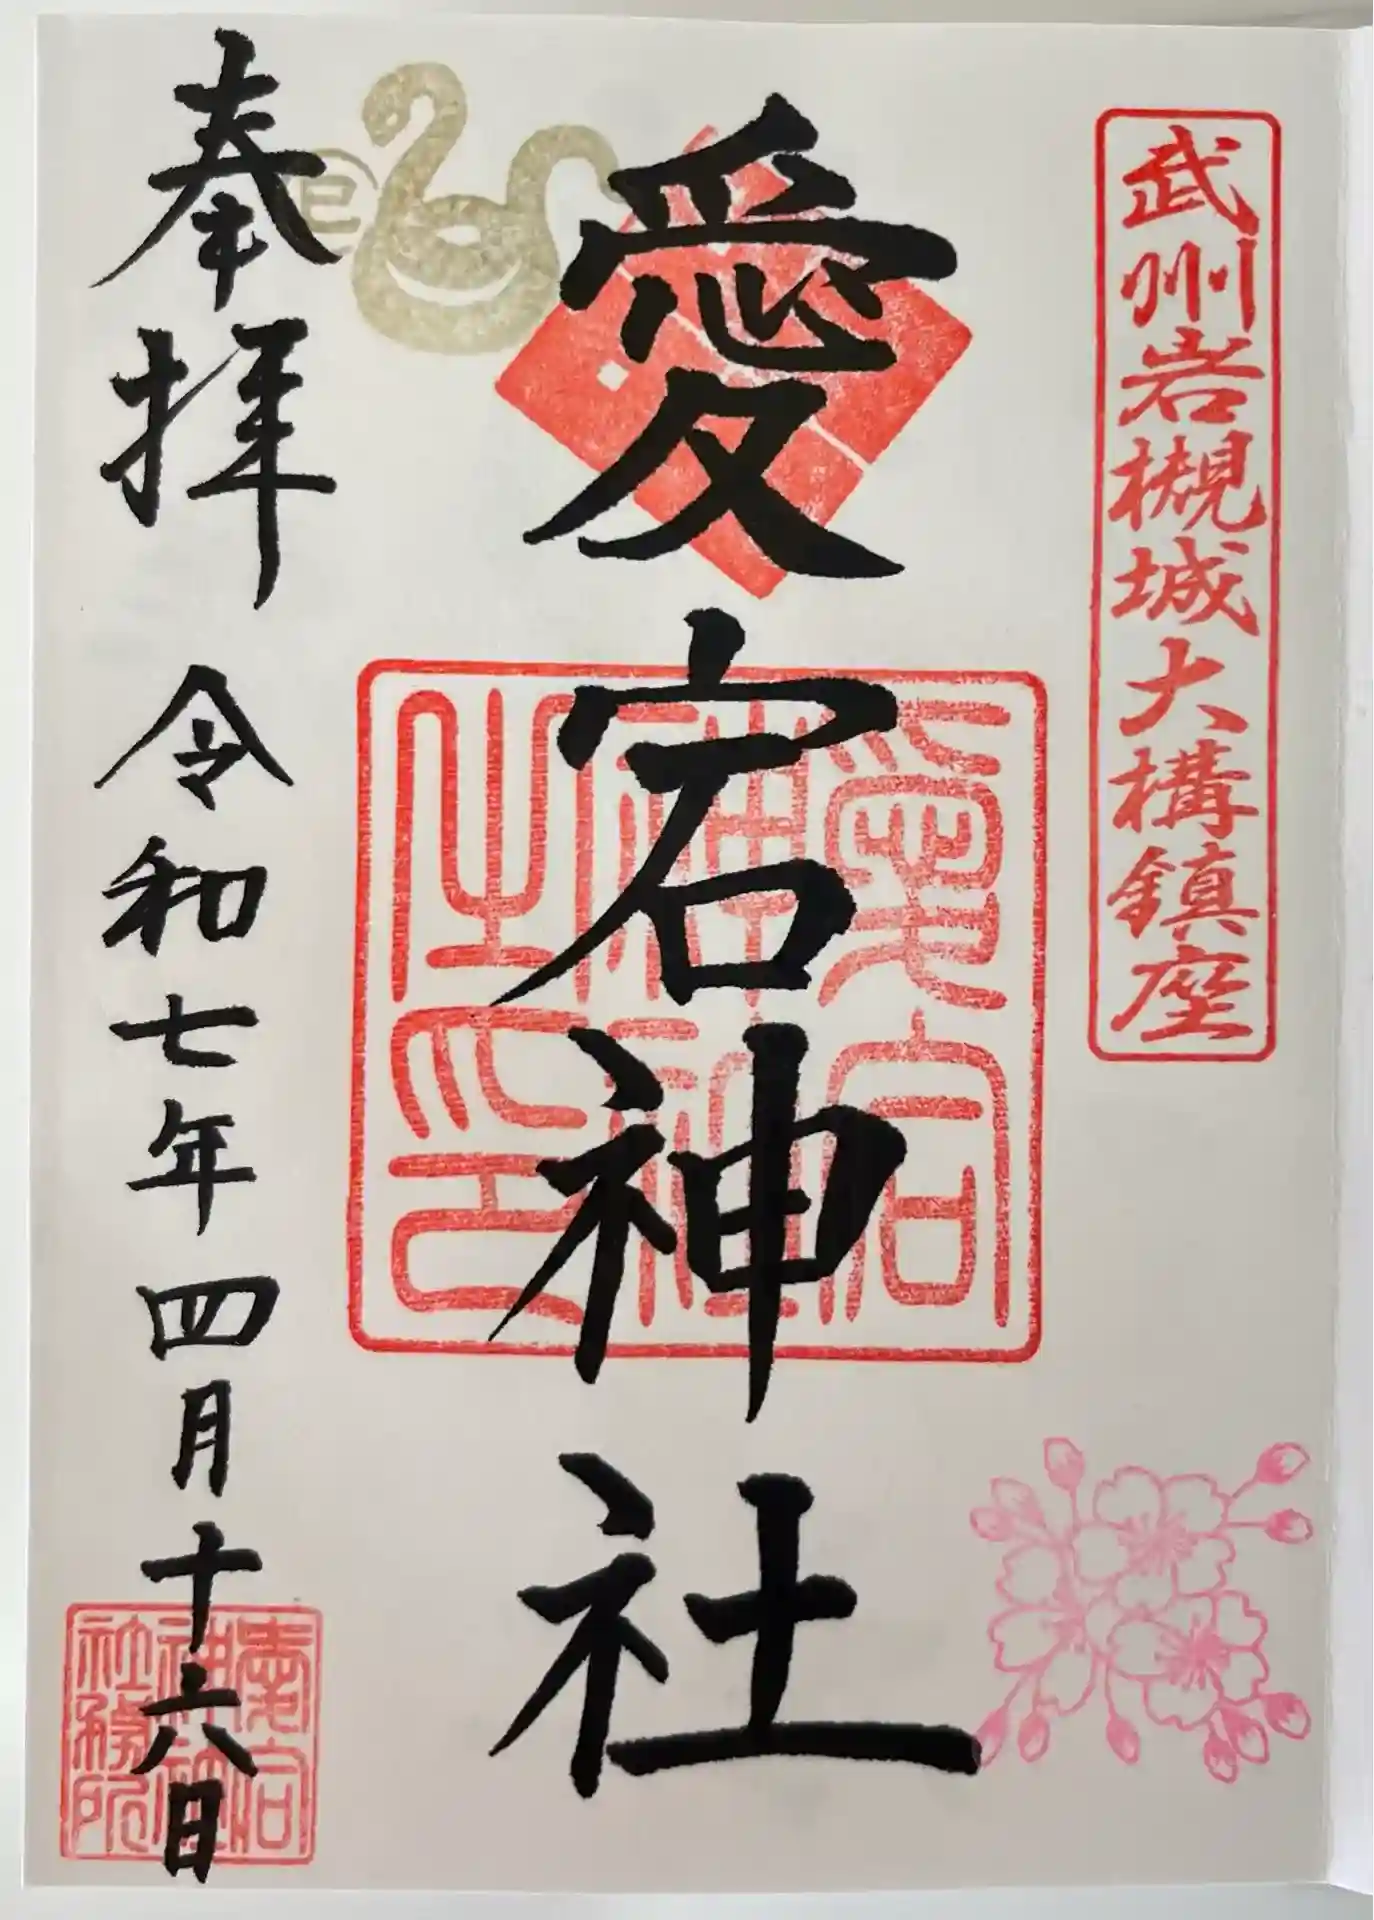 武州岩槻城大構鎮座
愛宕神社
愛宕
神社
之印
巳
奉拝
令和七年四月十六日
愛宕
神社
社務所